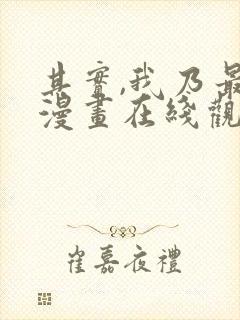 其實,我乃最
漫畫在綫觀
崔嘉夜禮